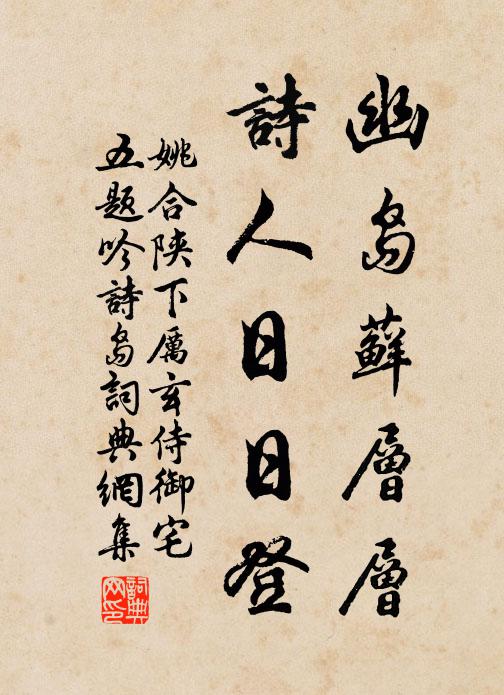 幽島蘚層層
詩人日日登
姚合陝下厲玄侍御宅
五題吟詩島詞典網集
詞典網印